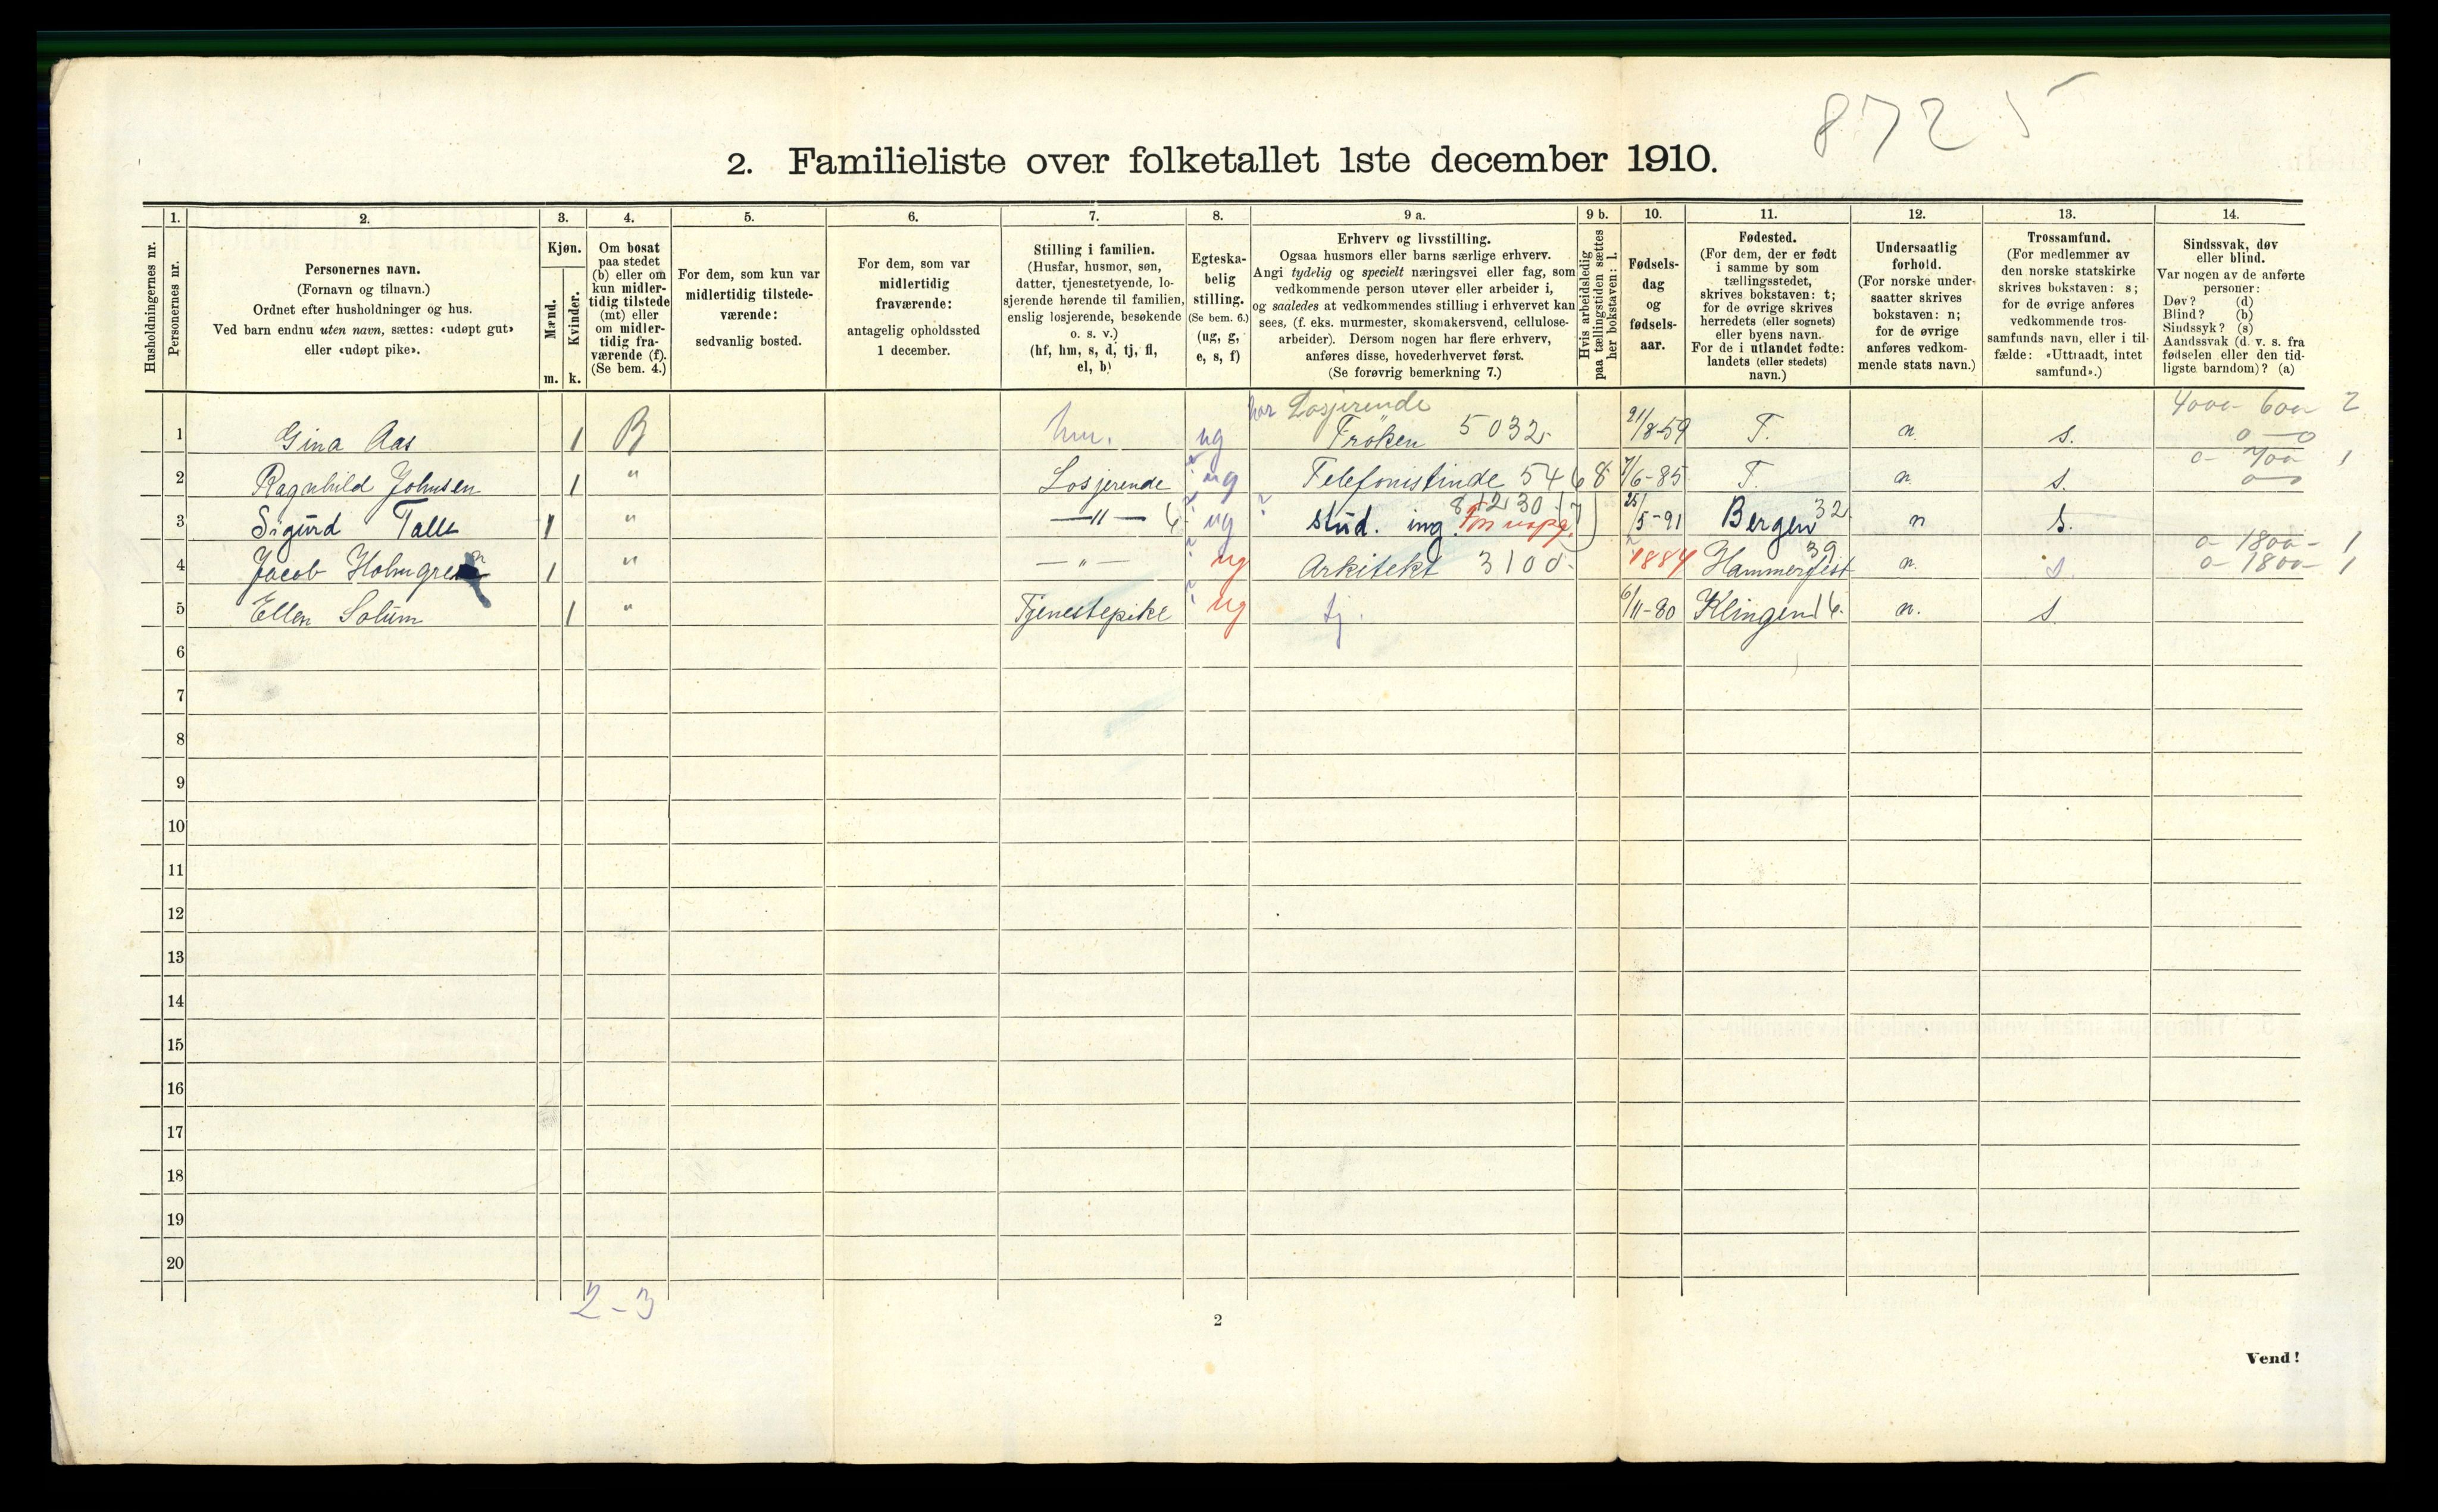 8725
2. Familieliste over folketallet 1ste december 1910.
Husholdningernes nr.
1. Personernes nr.
2. Personernes navn. (Fornavn og tilnavn.) Ordnet efter husholdninger og hus. Ved barn endnu uten navn, sættes: «udøpt gut» eller «udøpt pike».
3. Kjøn. Mænd. m. Kvinder. k.
4. Om bosat paa stedet (b) eller om kun midlertidig tilstede (mt) eller om midlertidig fraværende (f). (Se bem. 4.)
5. For dem, som kun var midlertidig tilstedeværende: sedvanlig bosted.
6. For dem, som var midlertidig fraværende: antagelig opholdssted 1 december.
7. Stilling i familien. (Husfar, husmor, søn, datter, tjenestetyende, losjerende hørende til familien, enslig losjerende, besøkende o. s. v.) (hf, hm, s, d, tj, fl, el, b)
8. Egteskabelig stilling. (Se bem. 6.) (ug, g, e, s, f)
9 a. Erhverv og livsstilling. Ogsaa husmors eller barns særlige erhverv. Angi tydelig og specielt næringsvei eller fag, som vedkommende person utøver eller arbeider i, og saaledes at vedkommendes stilling i erhvervet kan sees, (f. eks. murmester, skomakersvend, cellulosearbeider). Dersom nogen har flere erhverv, anføres disse, hovederhvervet først. (Se forøvrig bemerkning 7.)
9 b. Hvis arbeidsledig paa tællingstiden sættes her bokstaven: l.
10. Fødselsdag og fødselsaar.
11. Fødested. (For dem, der er født i samme by som tællingsstedet, skrives bokstaven: t; for de øvrige skrives herredets (eller sognets) eller byens navn. For de i utlandet fødte: landets (eller stedets) navn.)
12. Undersaatlig forhold. (For norske undersaatter skrives bokstaven: n; for de øvrige anføres vedkommende stats navn.)
13. Trossamfund. (For medlemmer av den norske statskirke skrives bokstaven: s; for de øvrige anføres vedkommende trossamfunds navn, eller i tilfælde: «Uttraadt, intet samfund».)
14. Sindssvak, døv eller blind. Var nogen av de anførte personer: Døv? (d) Blind? (b) Sindssyk? (s) Aandssvak (d. v. s. fra fødselen eller den tidligste barndom)? (a)
har Losjerende 4000- 600 2
1 Gina Aas 1 B hm. ug Fröken 5032. 21/8-59 T. n. s. 0-0
0- 700 1
2 Ragnhild Johnsen 1 " Losjerende ug Telefonistinde 5468 7/6-85 T. n. s. 0-0
3 Sigurd Talle 1 " —"— ug stud. ing. 25/5-91 Bergen 32 n s.
0- 1800- 1
4 Jacob Holmgren 1 " —"— ug Arkitekt 3100. 1884 Hammerfest 39 n. s. 0- 1800- 1
5 Ellen Solum 1 " Tjenestepike ug tj. 6/11-80 Klingen 16. n. s.
6
7
8
9
10
11
12
13
14
15
16
17
18
19
20
2-3
2
Vend!